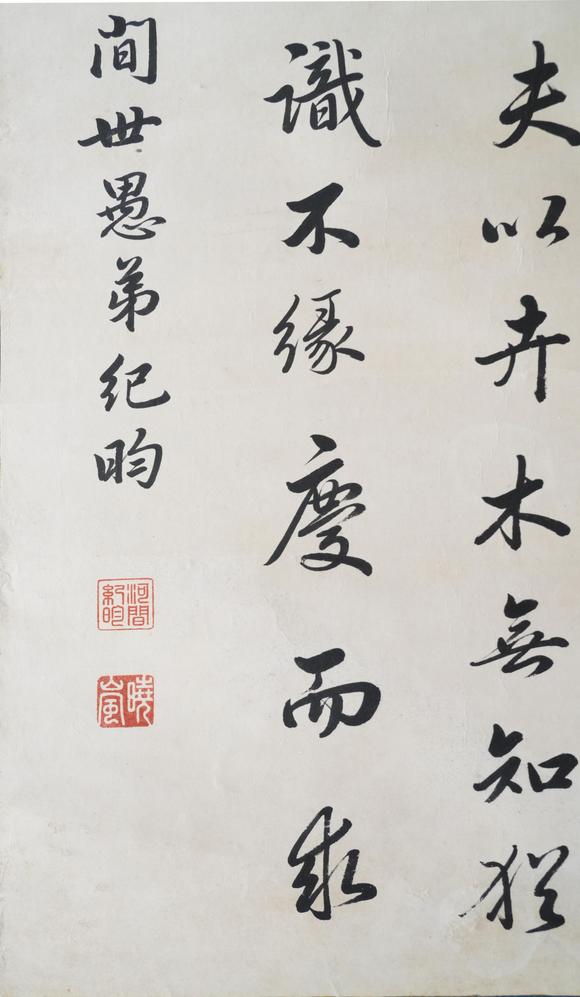 夫以卉木無知猶
識不緣慶而
間世愚弟紀昀
河間紀昀
曉嵐